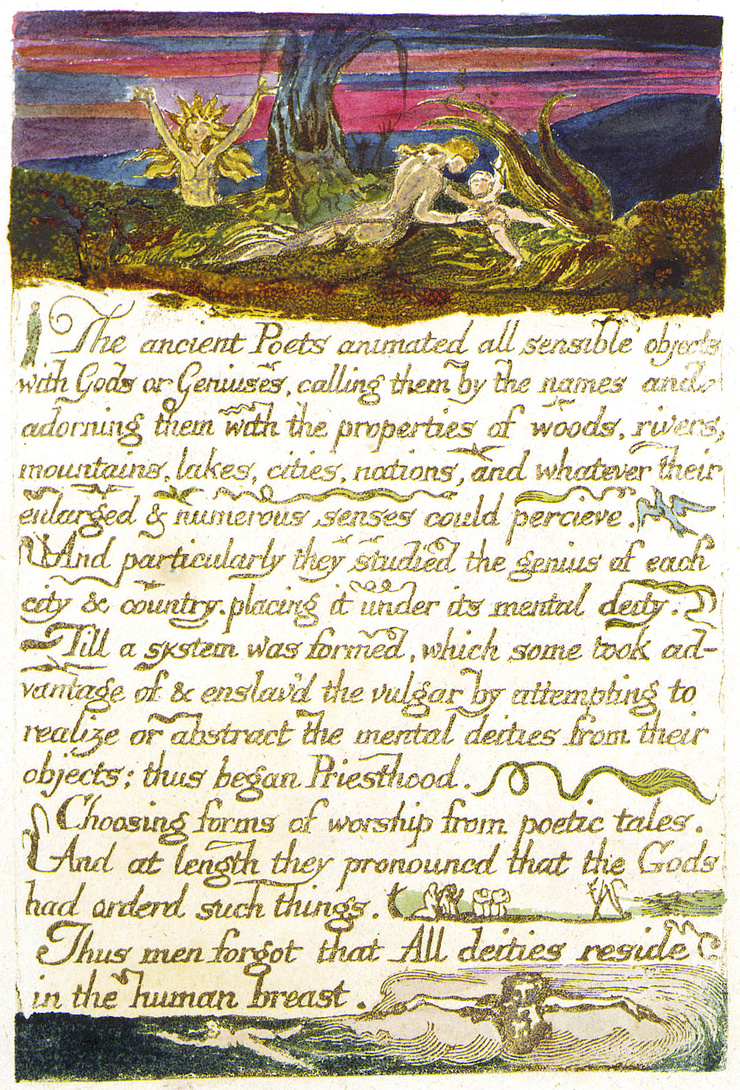 The ancient Poets animated all sensible objects
with Gods or Geniuses, calling them by the names and
adorning them with the properties of woods, rivers,
mountains, lakes, cities, nations, and whatever their
enlarged & numerous senses could percieve.
And particularly they studied the genius of each
city & country. placing it under its mental deity.
Till a system was formed, which some took ad-
vantage of & enslav'd the vulgar by attempting to
realize or abstract the mental deities from their
objects; thus began Priesthood.
Choosing forms of worship from poetic tales.
And at length they pronouncd that the Gods
had orderd such things.
Thus men forgot that All deities reside
in the human breast.